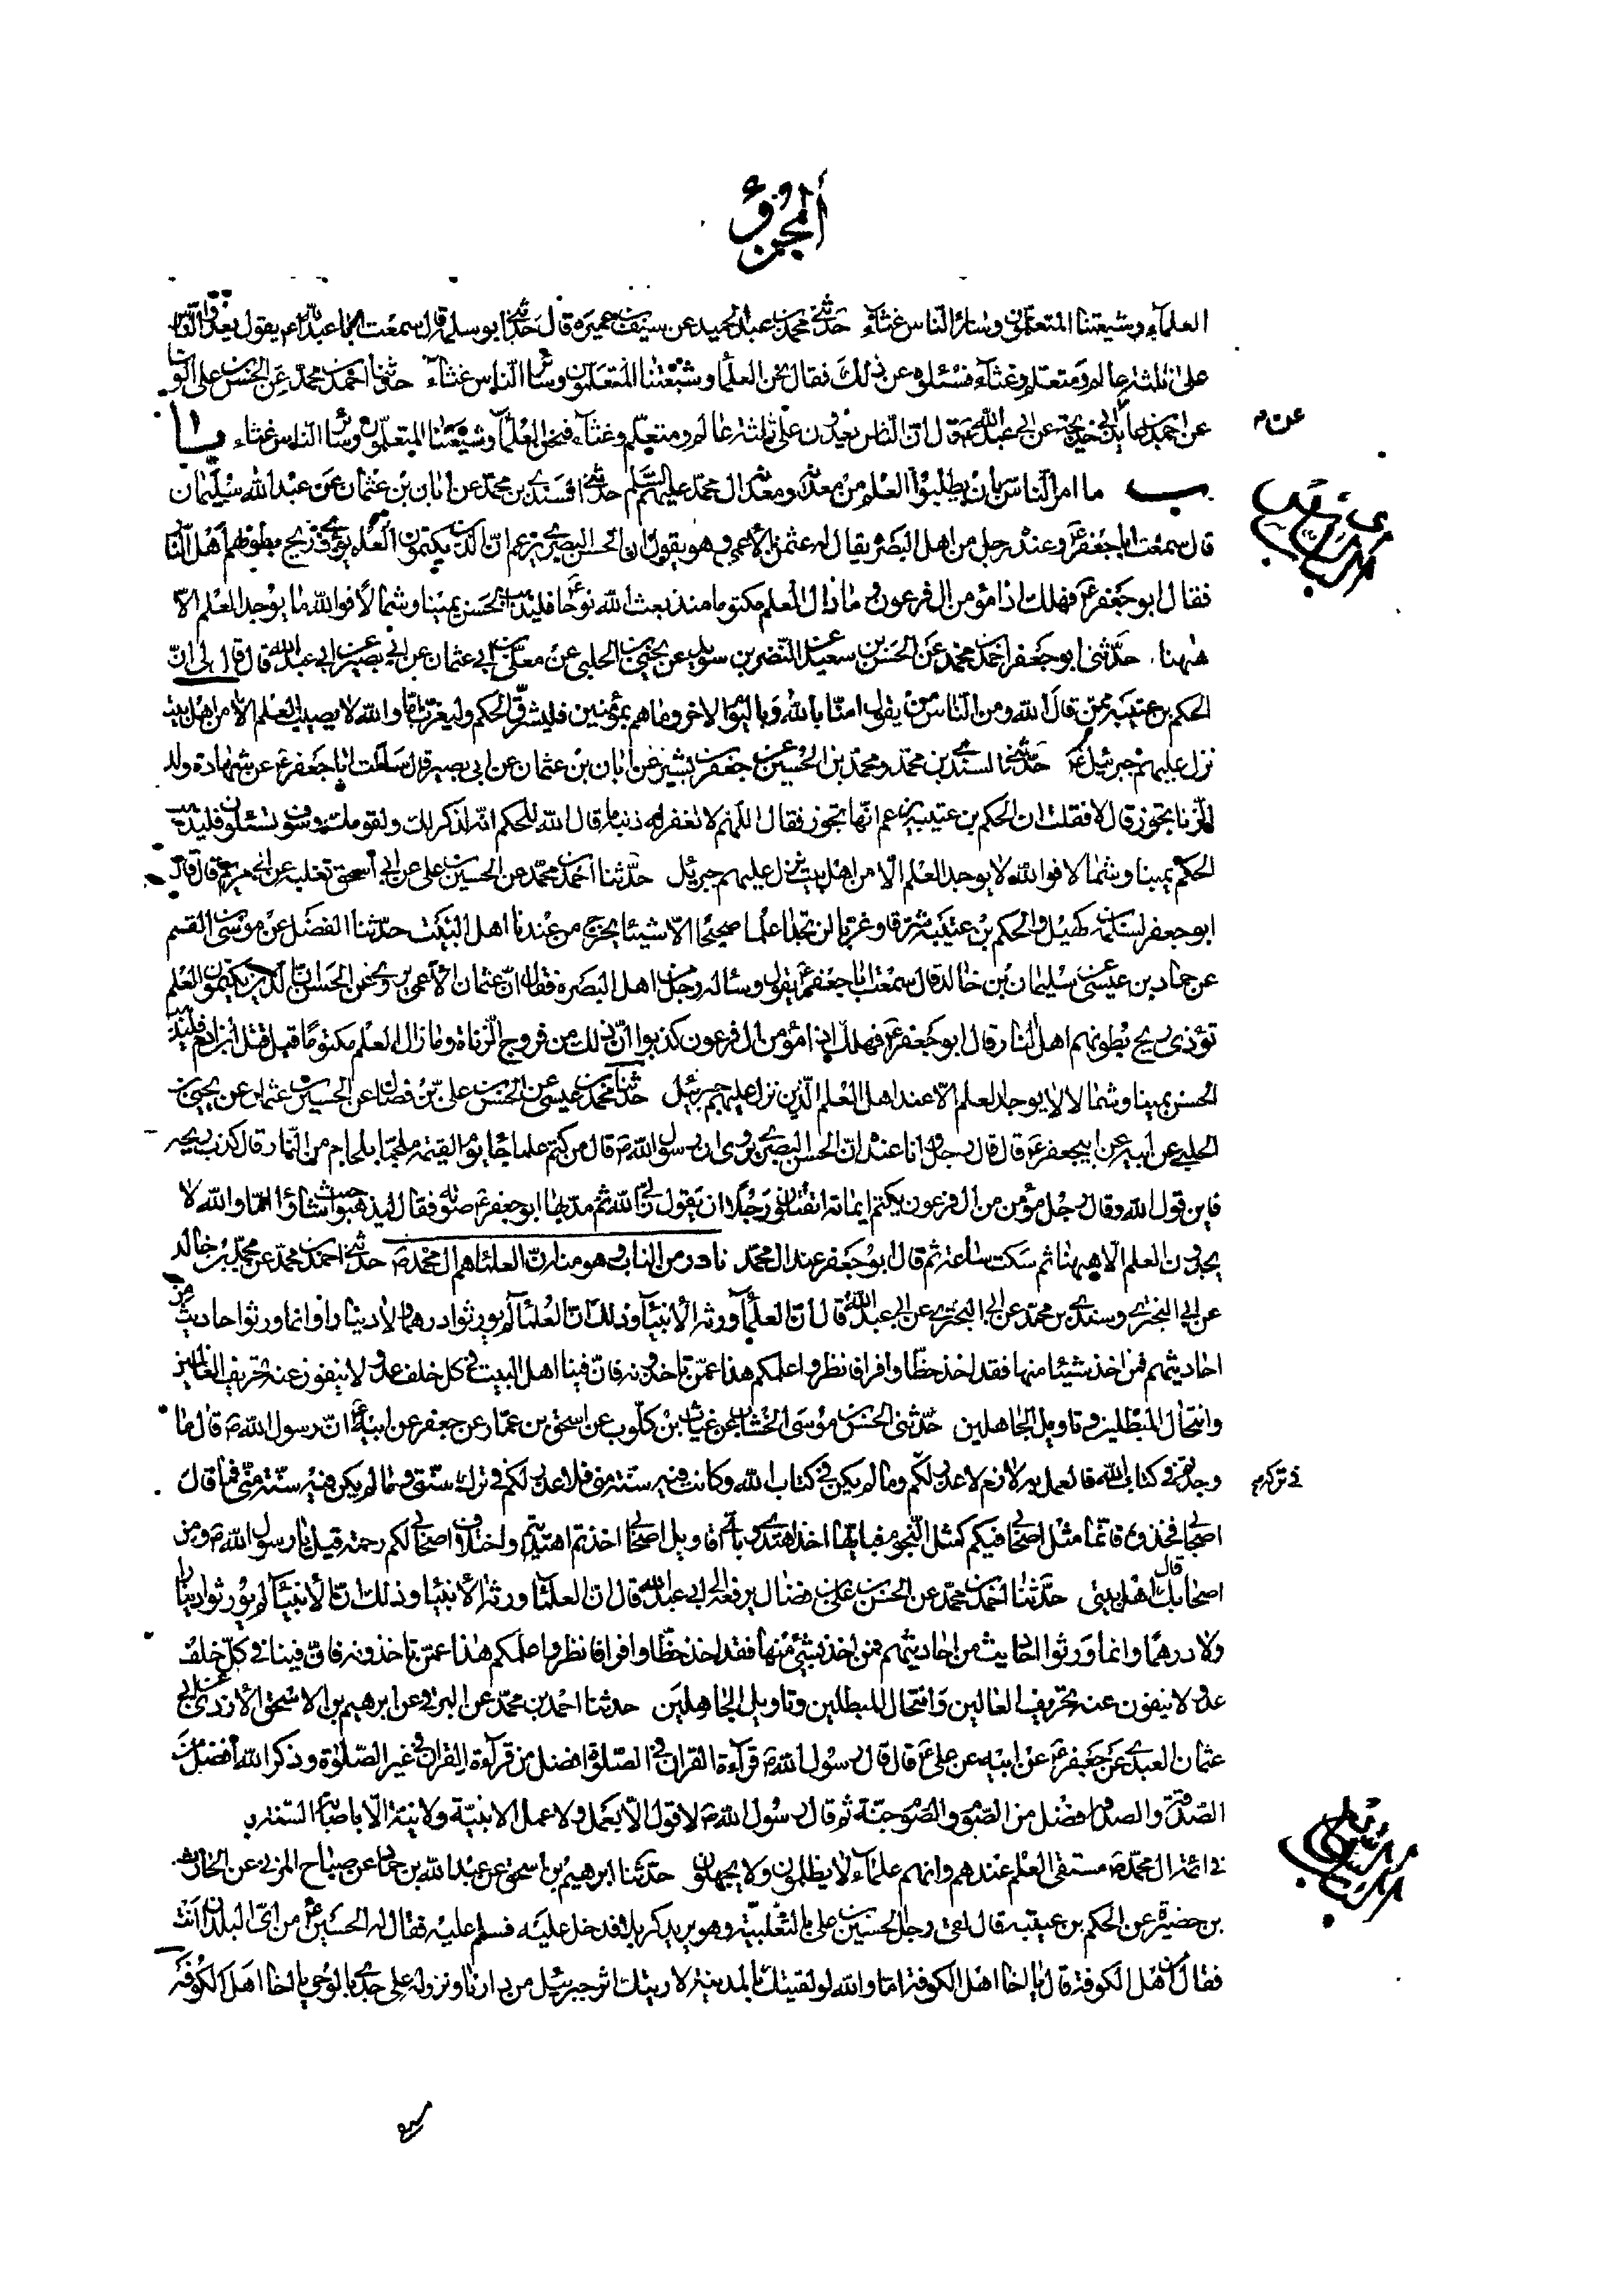 الجزؤ
العلمآء وشيعتنا المتعلمون وسائر الناس غثآء حدثنى محمد بن عبد الحميد عن سيف بن عميرة قال حدثنى ابو سلمة قال سمعت ابا عبد الله ع يقول يغدوا الناس
على ثلثة عالم ومتعلم وغثآء فسئلوه عن ذلك فقال نحن العلمآ وشيعتنا المتعلمون وسائر الناس غثآء حدثنا احمد بن محمد عن الحسن بن على الوشا
عن احمد بن عائذ عن ابى خديجة عن ابى عبد الله ع قال ان الناس يغدون على ثلثة عالم ومتعلم وغثآء فنحن العلمآ وشيعتنا المتعلمون وسائر الناس غثاء باب
ما امر الناس بان يطلبوا العلم من معدنه ومعدنه ال محمد عليهم السلم حدثنى السندى بن محمد عن ابان بن عثمان عن عبد الله سليمان
قال سمعت ابا جعفر ع وعنده رجل من اهل البصرة يقال له عثمن الاعمى وهو يقول ان الحسن البصرى يزعم ان الذين يكتمون العلم يؤذى ريح بطونهم اهل النار
فقال ابو جعفر ع فهلك اذا مؤمن ال فرعون وما زال العلم مكتوما منذ بعث الله نوحا فليذهب الحسن يمينا وشمالا فوالله ما يوجد العلم الا
ههنا حدثنى ابو جعفر احمد بن محمد عن الحسن بن سعيد عن النضر بن سويد عن يحيى الحلبى عن معلى بن ابى عثمان عن ابى بصير عن ابى عبد الله قال قال لى ان
الحكم بن عتيبة ممن قال الله ومن الناس من يقول امنا بالله وباليوم الاخر وما هم بمؤمنين فليشرق الحكم وليغرب اما والله لا يصيب العلم الا من اهل بيت
نزل عليهم جبرئيل ع حدثنا السندى بن محمد ومحمد بن الحسين عن جعفر بن بشير عن ابان بن عثمان عن ابى بصير قال سالت ابا جعفر ع عن شهادة ولد
الزنا تجوز قال لا فقلت ان الحكم بن عتيبة يزعم انها تجوز فقال اللهم لا تغفر له ذنبه ما قال الله للحكم انه لذكر لك ولقومك وسوف تسئلون فليذهب
الحكم يمينا وشمالا فوالله لا يوجد العلم الا من اهل بيت نزل عليهم جبرئيل حدثنا احمد بن محمد عن الحسين بن على عن ابى اسحق ثعلبة عن ابى مريم قال قال
ابو جعفر لسلمة بن كهيل والحكم بن عتيبة شرقا وغربا لن تجدا علما صحيحا الا شيئا يخرج من عندنا اهل البيت حدثنا الفضل عن موسى بن القسم
عن حماد بن عيسى عن سليمان بن خالد قال سمعت ابا جعفر ع يقول وساله رجل من اهل البصرة فقال ان عثمان الاعمى يروى عن الحسن ان الذين يكتمون العلم
تؤذى ريح بطونهم اهل النار قال ابو جعفر ع فهلك اذا مؤمن ال فرعون كذبوا ان ذلك من فروج الزناة وما زال العلم مكتوما قبل قتل ابن ادم فليذهب
الحسن يمينا وشمالا لا يوجد العلم الا عند اهل العلم الذين نزل عليهم جبرئيل حدثنا محمد بن عيسى عن الحسن بن على بن فضال عن الحسين بن عثمان عن يحيى بن
الحلبى عن ابيه عن ابى جعفر ع قال قال رجل وانا عنده ان الحسن البصرى يروى ان رسول الله ص قال من كتم علما جاء يوم القيمة ملجما بلجام من النار قال كذب ويحه
فاين قول الله وقال رجل مؤمن من ال فرعون يكتم ايمانه اتقتلون رجلا ان يقول ربى الله ثم مد بها ابو جعفر ع صوته فقال ليذهبوا حيث شاؤا اما والله لا
يجدون العلم الا ههنا ثم سكت ساعة ثم قال ابو جعفر عند ال محمد نادر من الباب وهو منه ان العلماء هم ال محمد ص حدثنى احمد بن محمد عن محمد بن خالد
عن ابى البخترى وسندى بن محمد عن ابى البخترى عن ابى عبد الله قال ان العلمآ ورثة الانبيآ وذلك ان العلمآ لم يورثوا درهما ولا دينارا وانما ورثوا احاديث من
احاديثهم فمن اخذ شيئا منها فقد اخذ حظا وافرا فانظروا علمكم هذا عمن تاخذونه فان فينا اهل البيت فى كل خلف عدولا ينفون عنه تحريف الغالين
وانتحال المبطلين وتاويل الجاهلين حدثنى الحسن بن موسى الخشاب عن غياث بن كلوب عن اسحق بن عمار عن جعفر عن ابيه ع ان رسول الله ص قال ما
وجدتم فى كتاب الله فالعمل به لازم لا عذر لكم وما لم يكن فى كتاب الله وكانت فيه سنة منى فلا عذر لكم فى ترك سنتى وما لم يكن فيه سنة منى فما قال
اصحابى فخذوه فانما مثل اصحابى فيكم كمثل النجوم فبايها اخذ اهتدى وباى اقاويل اصحابى اخذتم اهتديتم واختلاف اصحابى لكم رحمة قيل يا رسول الله ص ومن
اصحابك قال اهل بيتى حدثنا احمد بن محمد عن الحسن بن على بن فضال يرفعه الى ابى عبد الله قال ان العلمآ ورثة الانبيا وذلك ان الانبيآ لم يورثوا دينارا
ولا درهما وانما ورثوا احاديث من احاديثهم فمن اخذ بشئ منها فقد اخذ حظا وافرا فانظروا علمكم هذا عمن تاخذونه فان فينا فى كل خلف
عدولا ينفون عنه تحريف الغالين وانتحال المبطلين وتاويل الجاهلين حدثنا احمد بن محمد عن البرقى عن ابرهيم بن الاسحق الازدى عن ابى
عثمان العبدى عن جعفر ع عن ابيه عن على ع قال قال رسول الله ص قرآءة القران فى الصلوة افضل من قرآءة القران فى غير الصلوة وذكر الله افضل من
الصدقة والصدقة افضل من الصوم والصوم جنة ثم قال رسول الله ص لا قول الا بعمل ولا عمل الا بنية ولا نية الا باصابة السنة
فى ائمة ال محمد ص مستقى العلم عندهم وانهم علمآء لا يظلمون ولا يجهلون حدثنا ابرهيم بن اسحق عن عبد الله بن حماد عن صباح المزنى عن الحارث
بن حضيرة عن الحكم بن عتيبة قال لقى رجل الحسين بن على بالثعلبية وهو يريد كربلا فدخل عليه فسلم عليه فقال له الحسين ع من اى البلدان انت
فقال من اهل الكوفة قال يا اخا اهل الكوفة اما والله لو لقيتك بالمدينة لاريتك اثر جبرئيل من دارنا ونزوله على جدى بالوحى يا اخا اهل الكوفة